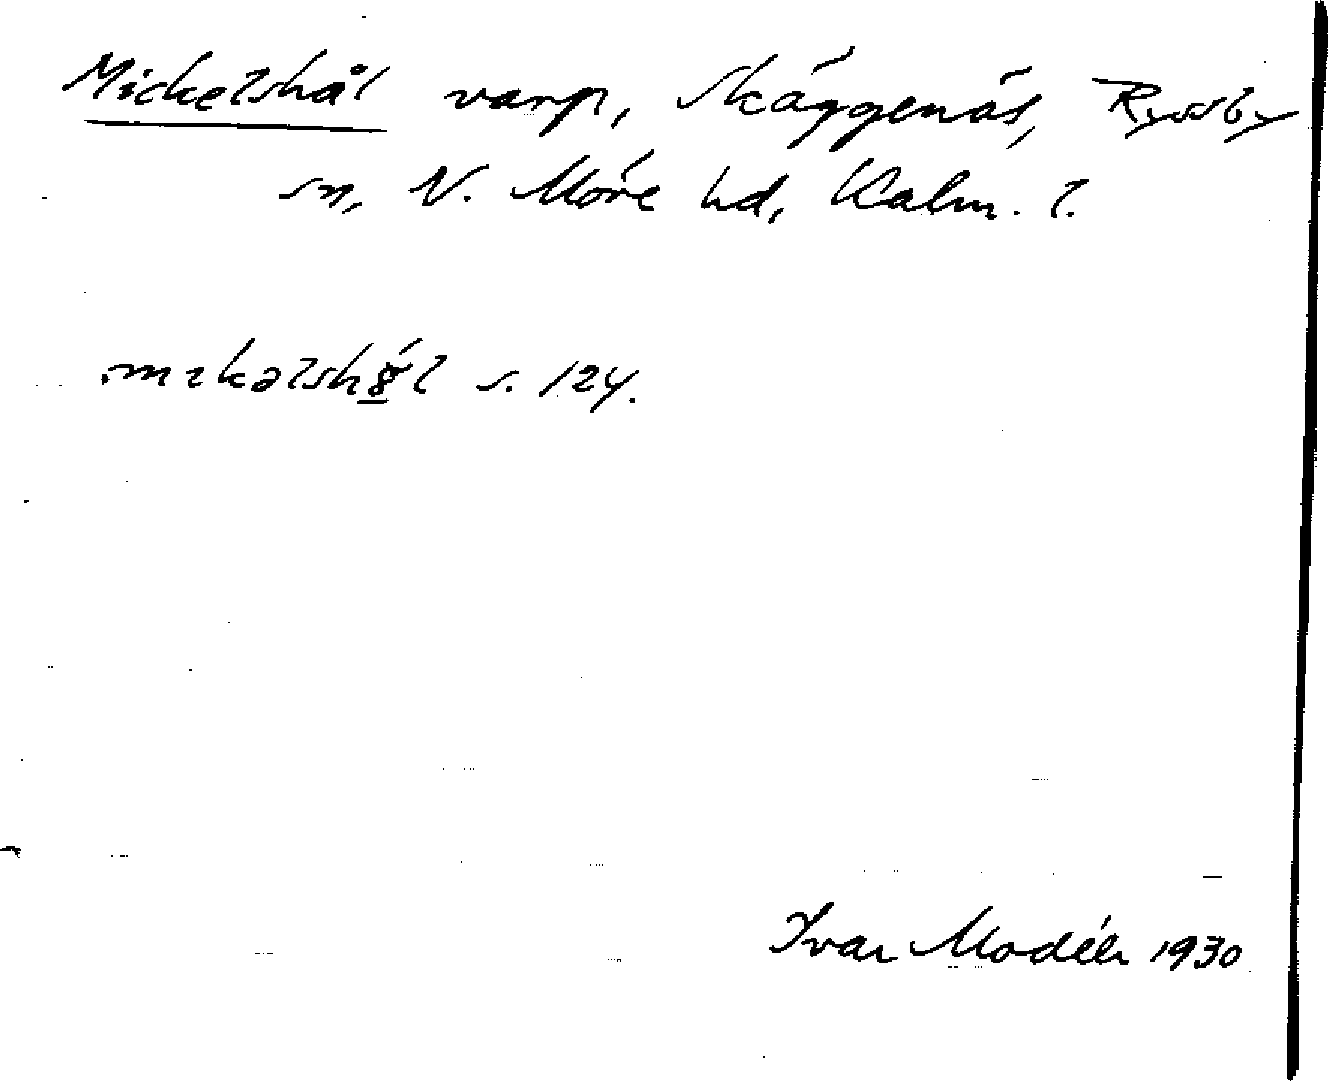 Mickelshål varp, Skäggenäs, Ryssby
sn, N. Möre hd, Kalm. l.
s. 124.
Ivar Modéer 1930